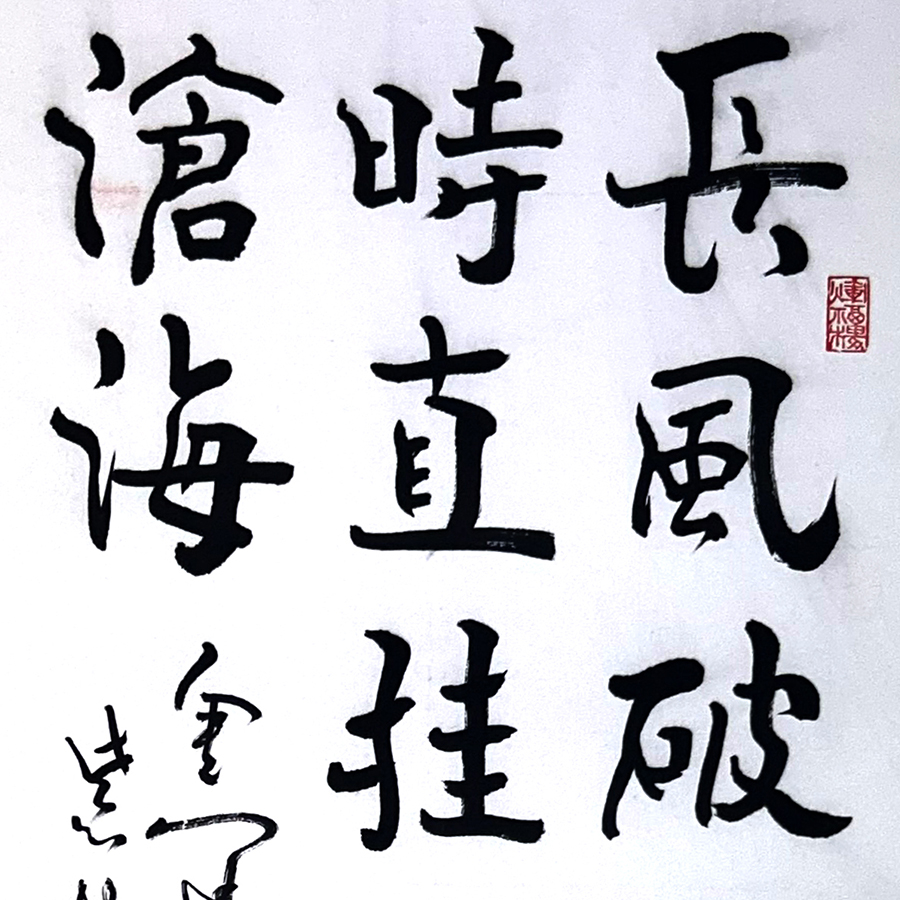 長風破
時直挂
滄海
紫